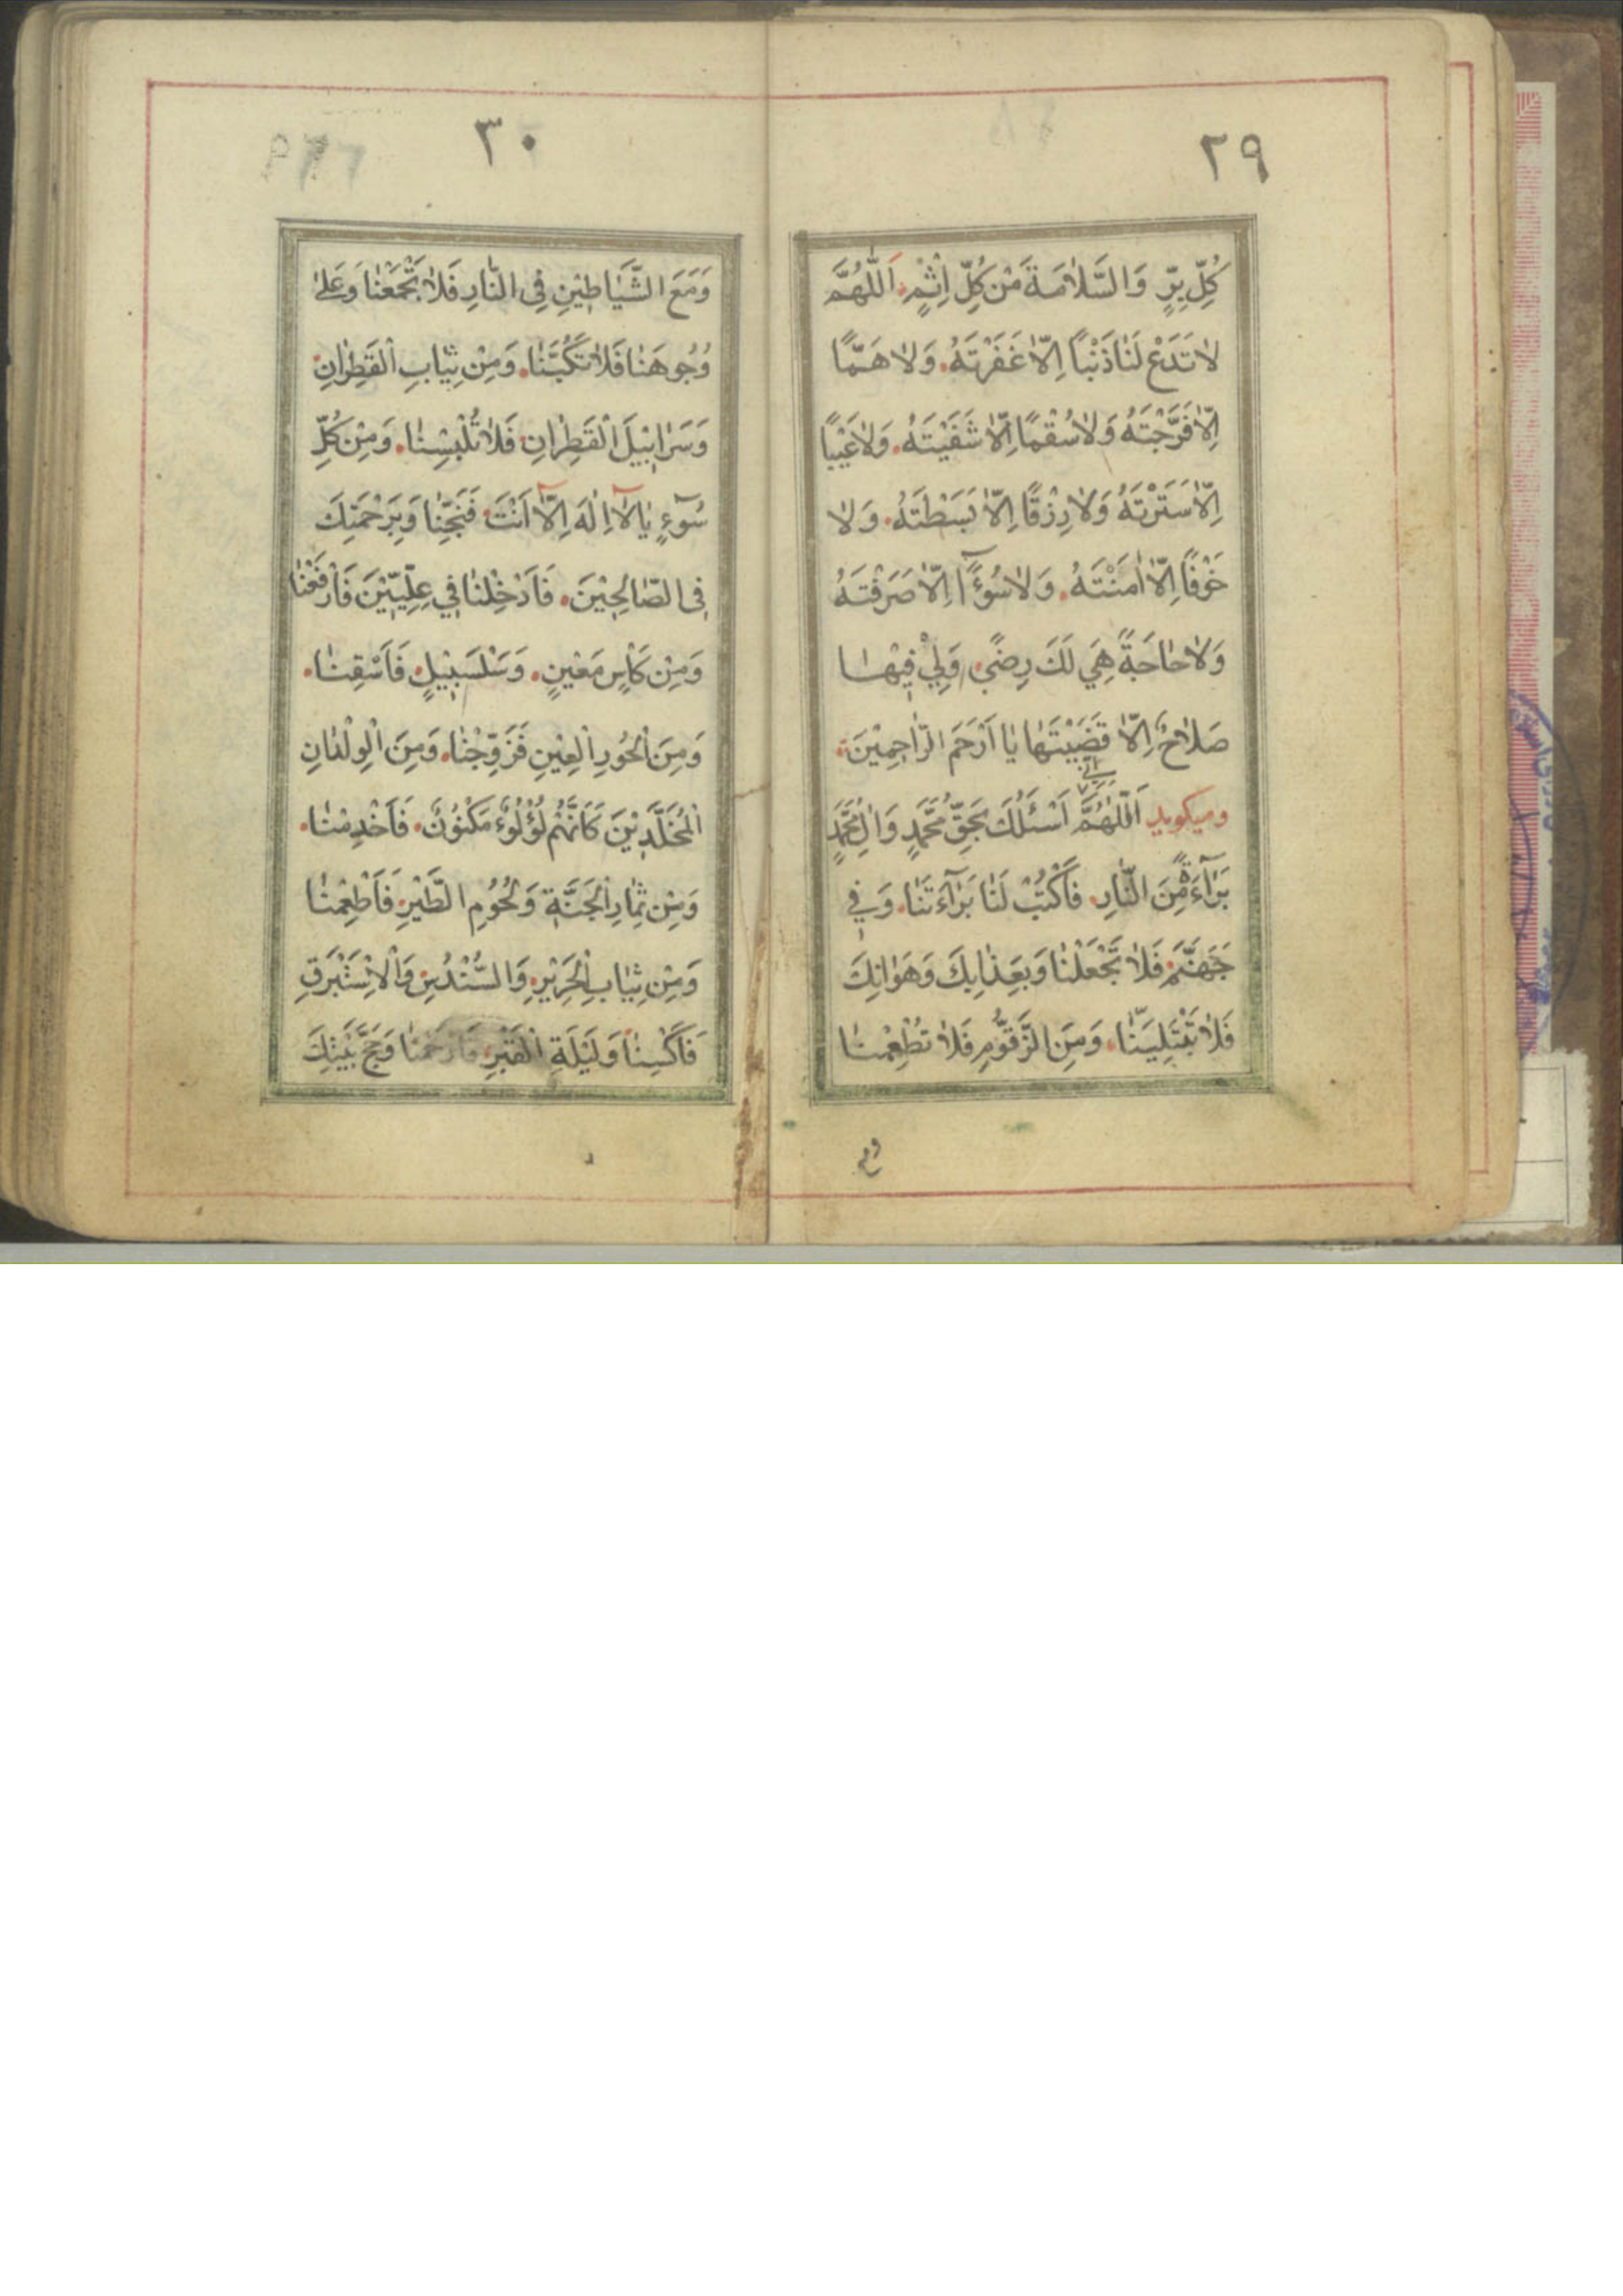 ٢٩
كُلِّ بِرٍّ وَالسَّلٰامَةَ مَنْ كُلِّ اِثْمٍ اَللّٰهُمَّ
لٰا تَدَعْ لَنٰا ذَنْبًا اِلّٰا غَفَرْتَهُ وَلٰا هَمًّا
اِلّٰا فَرَّجْتَهُ وَلٰا سُقْمًا اِلّٰا شَفَيْتَهُ وَلٰا عَيْبًا
اِلّٰا سَتَرْتَهُ وَلٰا رِزْقًا اِلّٰا بَسَطْتَهُ وَلٰا
خَوْفًا اِلّٰا اٰمَنْتَهُ وَلٰا سُوٓءًا اِلّٰا صَرَفْتَهُ
وَلٰا حٰاجَةً هِيَ لَكَ رِضًى وَلِيْ فِيْهٰا
صَلٰاحٌ اِلّٰا قَضَيْتَهٰا يٰا اَرْحَمَ الرّٰاحِمِيْنَ
وميكويد اَللّٰهُمَّ اِنّي اَسْئَلُكَ بِحَقِّ مُحَمَّدٍ وَاٰلِ مُحَمَّدٍ
بَرٰآءَةً مِنَ النّٰارِ فَاَكْتُبْ لَنٰا بَرٰآءَتَنٰا وَفِي
جَهَنَّمَ فَلٰا تَجْعَلْنٰا وَبِعَذٰابِكَ وَهَوٰانِكَ
فَلٰا تَبْتَلِيَنّٰا وَمِنَ الزَّقُّوْمِ فَلٰا تُطْعِمْنٰا
ومع
٣٠
وَمَعَ الشَّيٰاطِيْنِ فِي النّٰارِ فَلٰا تَجْمَعْنٰا وَعَلىٰ
وُجُوهِنٰا فَلٰا تَكُبَّنٰا وَمِنْ ثِيٰابِ الْقَطِرٰانِ
وَسَرٰابِيْلَ الْقَطِرٰانِ فَلٰا تُلْبِسْنٰا وَمِنْ كُلِّ
سُوٓءٍ يٰا لٰآ اِلٰهَ اِلّٰآ اَنْتَ فَنَجِّنٰا وَبِرَحْمَتِكَ
فِي الصّٰالِحِيْنَ فَاَدْخِلْنٰا فِي عِلِّيِّيْنَ فَاْرْفَعْنٰا
وَمِنْ كَاْسٍ مَعِيْنٍ وَسَلْسَبِيْلٍ فَاَسْقِنٰا
وَمِنَ الْحُورِ الْعِيْنِ فَزَوِّجْنٰا وَمِنَ الْوِلْدٰانِ
الْمُخَلَّدِيْنَ كَاَنَّهُمْ لُؤْلُوءٌ مَكْنُوْنٌ فَاَخْدِمْنٰا
وَمِنْ ثِمٰارِ الْجَنَّةِ وَلُحُوْمِ الطَّيْرِ فَاَطْعِمْنٰا
وَمِنْ ثِيٰابِ الْحَرِيْرِ وَالسُّنْدُسِ وَالْاِسْتَبْرَقِ
فَاَكْسِنٰا وَلَيْلَةِ الْقَبْرِ فَارْحَمْنٰا وَحَجَّ بَيْتِكَ